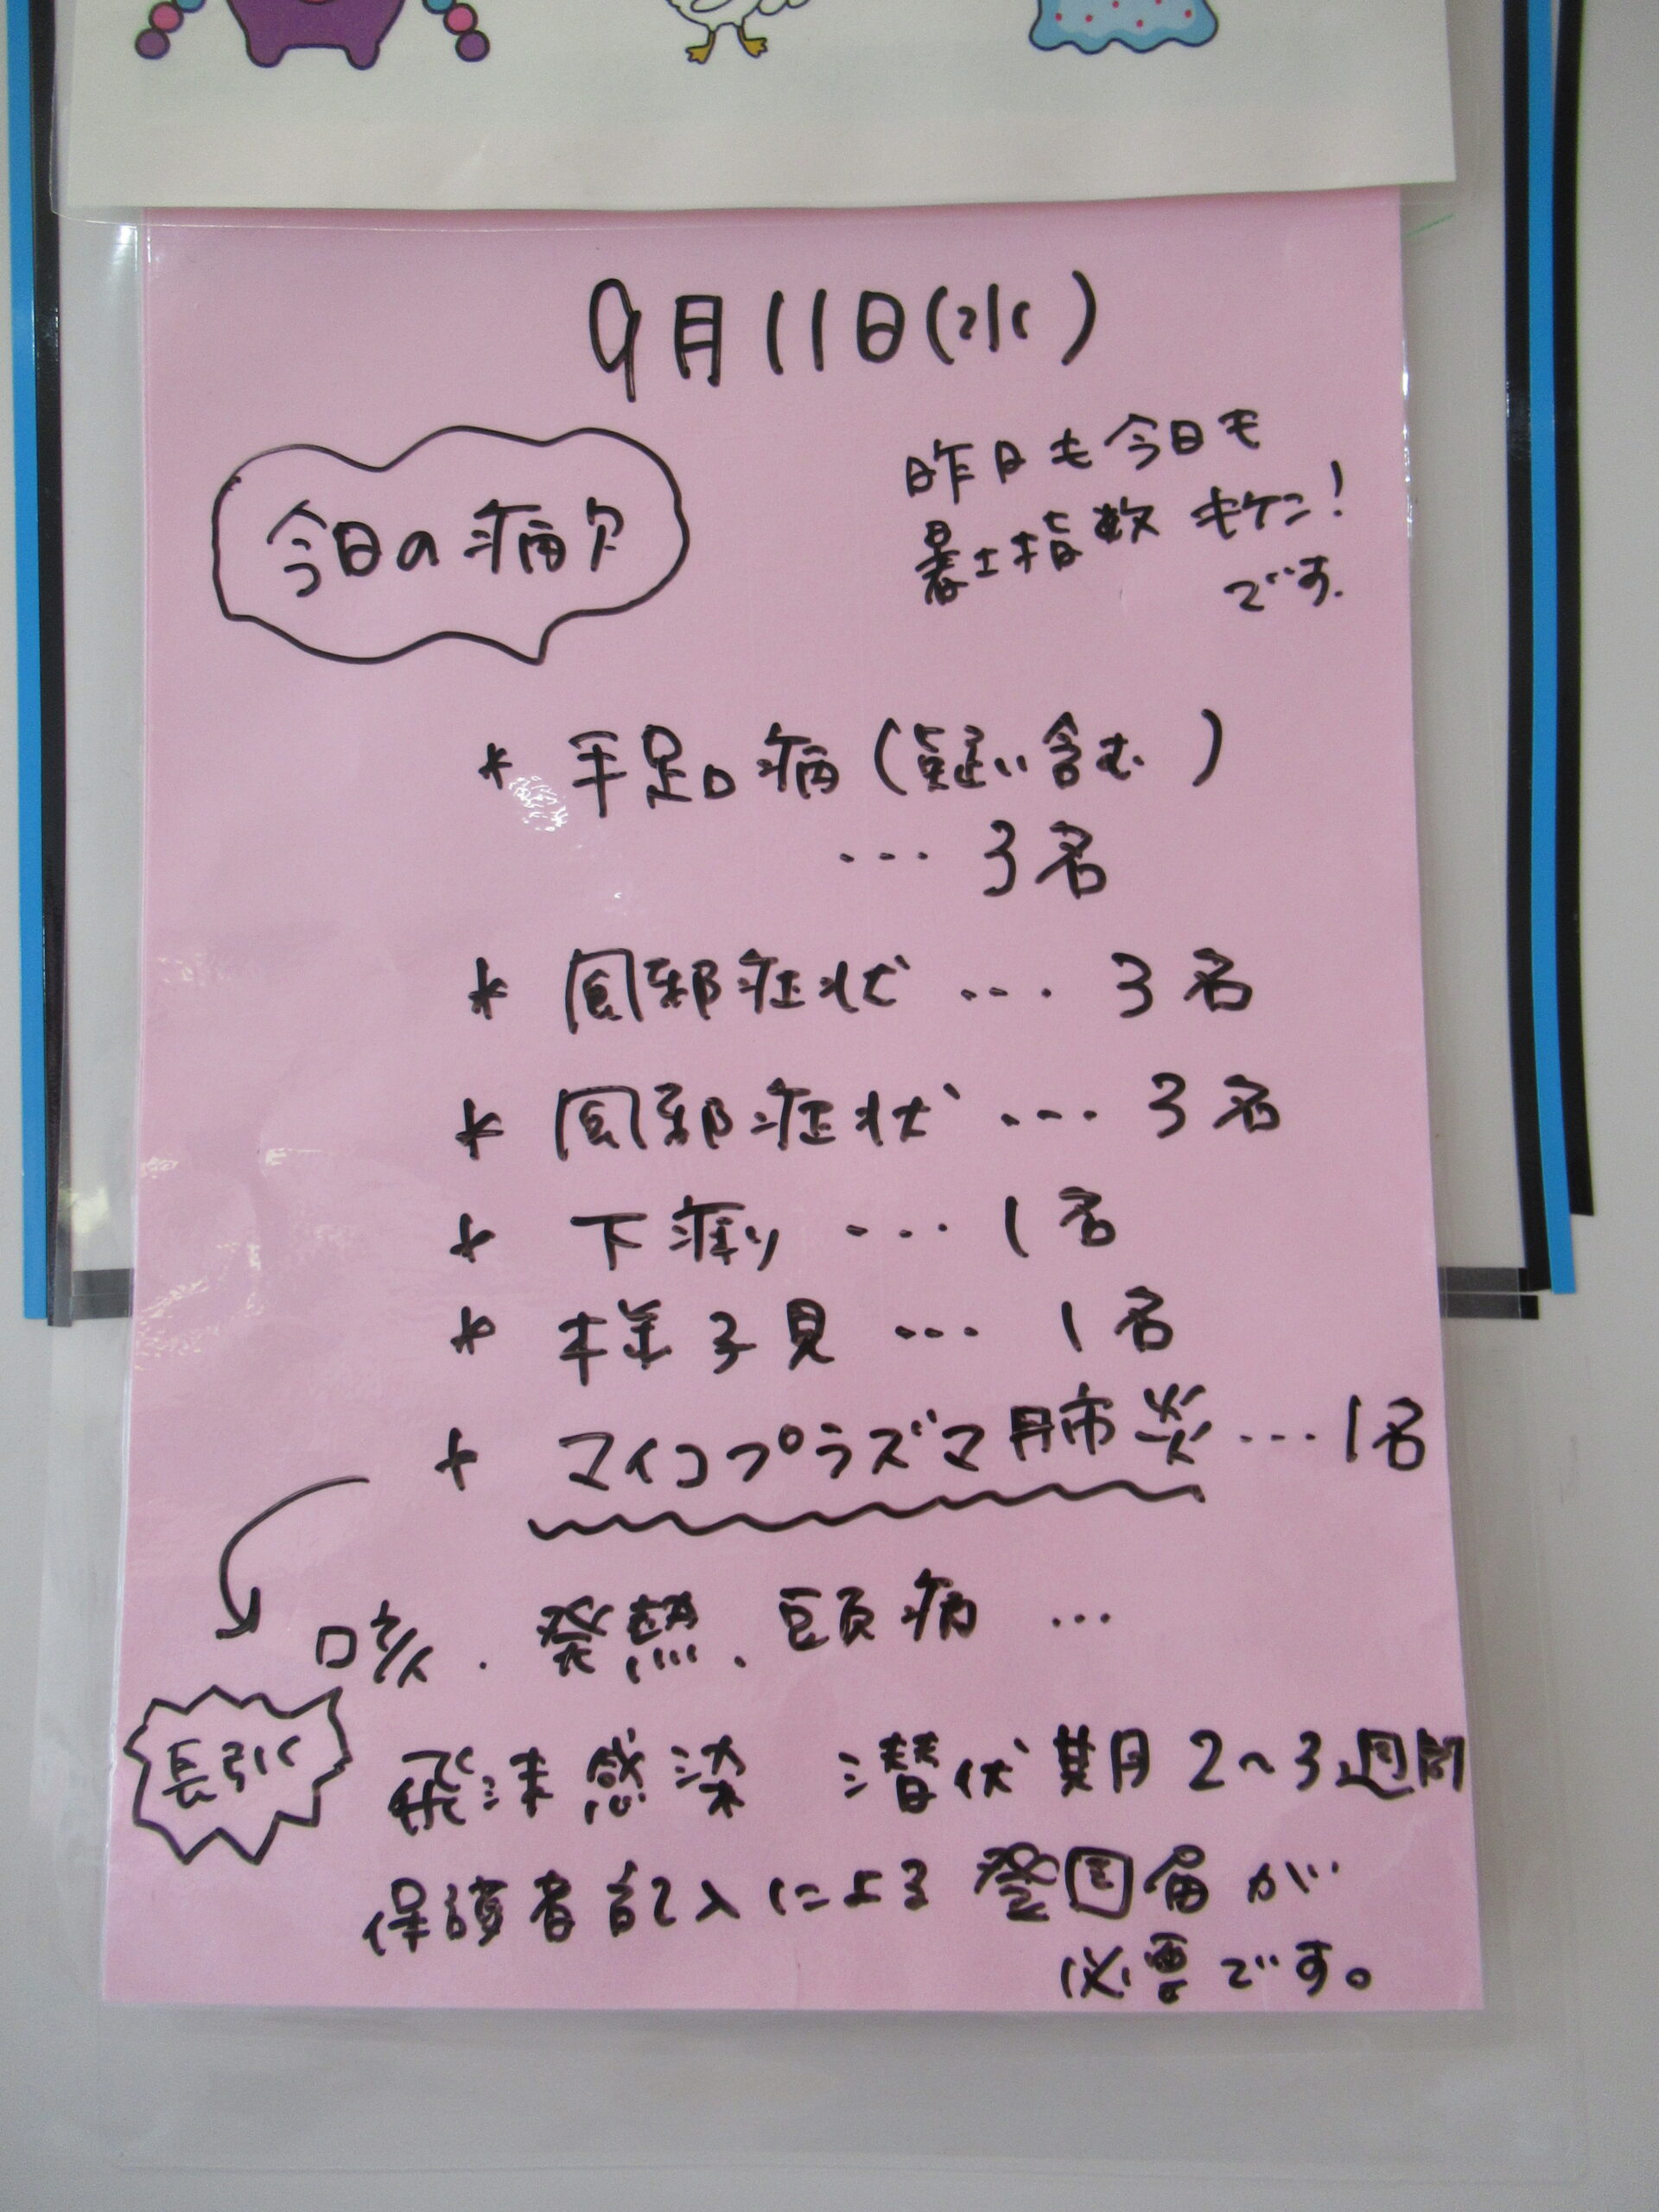 9月11日(水)
今日の病欠
昨日も今日も
暑さ指数 キケン!
です.
* 手足口病(疑い含む)
… 3名
* 風邪症状 … 3名
* 風邪症状 … 3名
* 下痢り … 1名
* 様子見 … 1名
* マイコプラズマ肺炎 … 1名
咳、発熱、頭痛 …
長引く
飛沫感染 潜伏期 2~3週間
保護者記入による登園届が
必要です。